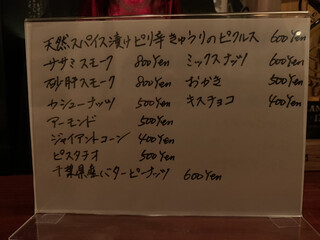 天然スパイス漬けピリ辛きゅうりのピクルス 600Yen
ササミスモーク 800Yen ミックスナッツ 600Yen
砂肝スモーク 800Yen おかき 500Yen
カシューナッツ 500Yen キスチョコ 400Yen
アーモンド 500Yen
ジャイアントコーン 400Yen
ピスタチオ 500Yen
千葉県産バターピーナッツ 600Yen